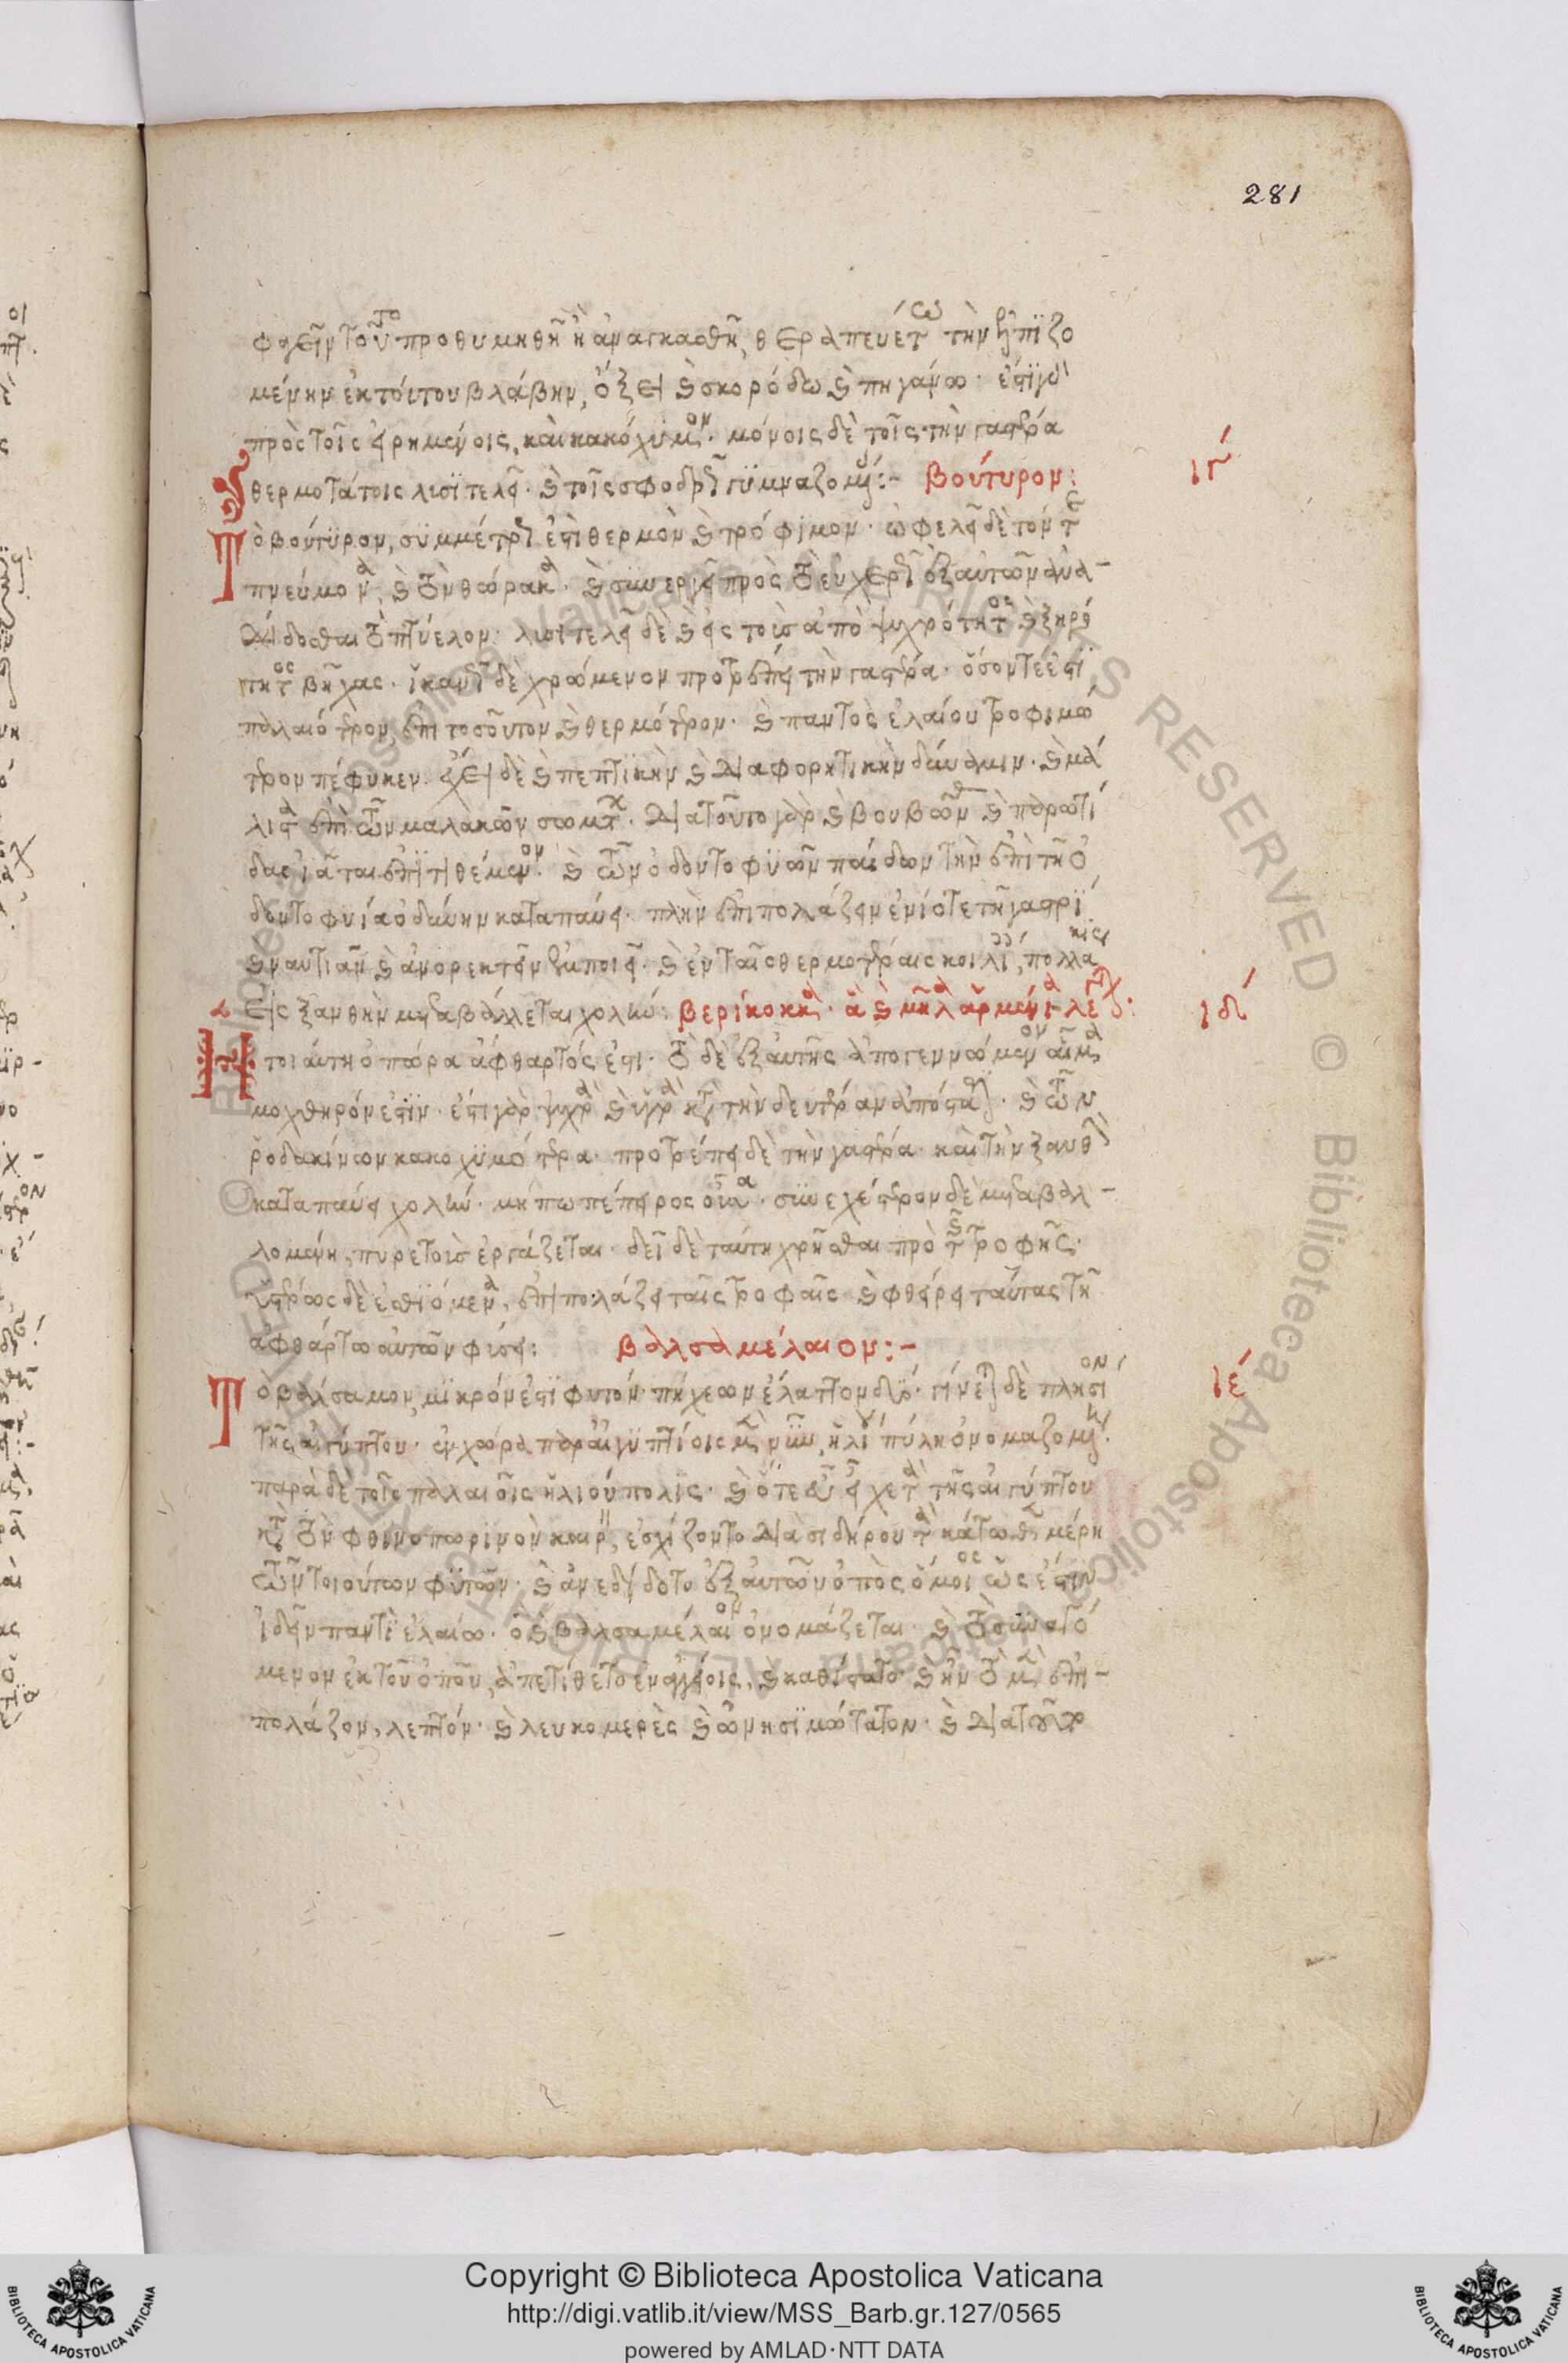 281
φαγεῖν τοῦτο προθυμηθῆ ἢ ἀναγκασθῆ, θεραπευέτω τὴν ἐλπϊζο
μένην ἐκ τούτου βλάβην, ὄξει καὶ σκορόδω καὶ πηγάνω· ἐστὶ γὰρ
πρὸς τοῖς εἰρημένοις, καὶ κακόχυμον· μόνοις δὲ τοῖς τὴν γαστέρα
θερμοτάτοις λυσϊτελεῖ· καὶ τοῖς σφοδρῶς γυμναζομένοις:- βούτυρον:
ιγ΄
Τὸ βούτυρον, συμμέτρως ἐστὶ θερμὸν καὶ τρόφιμον· ὠφελεῖ δὲ τόν τε
πνεύμονα, καὶ τὸν θώρακα· καὶ συνεργεῖ πρὸς τὸ εὐχερῶς ἐξ αὐτῶν ἀνα-
δίδοσθαι τὸ πτύελον· λυσιτελεῖ δὲ καὶ εἰς τοὺς ἀπὸ ψυχρότητος καὶ ξηρό
τητος βῆχας· ἱκανῶς δὲ χρώμενον προτρέπει τὴν γαστέρα· ὅσον τέ ἐστι
παλαιότερον, ἐπὶ τοσοῦτον καὶ θερμότερον· καὶ παντὸς ἐλαίου τροφιμώ
τερον πέφυκεν· ἔχει δὲ καὶ πεπτϊκὴν καὶ διαφορητικὴν δύναμιν· καὶ μά
λιστα ἐπὶ τῶν μαλακῶν σωμάτων· διὰ τοῦτο γὰρ καὶ βουβῶνας καὶ παρωτί
δας ἰᾶται ἐπιτιθέμενον· καὶ τῶν ὀδοντοφυῶν παίδων τὴν ἐπὶ τῆ ὀ
δοντοφυΐα ὀδύνην καταπαύει· πλὴν ἐπιπολάζειν ἐνίοτε τῆ γαστρὶ
καὶ ναυτιᾶν καὶ ἀνορεκτεῖν ἐμποιεῖ· καὶ ἐν ταῖς θερμοτέραις κοιλίαις, πολλάκις
εἰς ξανθὴν μεταβάλλεται χολήν: βερίκοκκα· ἃ καὶ μῆλα ἀρμένια λέγεται:
ιδ΄
Ἡ τοιαύτη ὀπώρα ἄφθαρτός ἐστι· τὸ δὲ ἐξ αὐτῆς ἀπογεννώμενον αἷμα
μοχθηρόν ἐστιν· ἐστὶ γὰρ ψυχρὰ καὶ ὑγρὰ κατὰ τὴν δευτέραν ἀπόστασιν· καὶ τῶν
ῥοδακίνων κακοχυμότερα· προτρέπει δὲ τὴν γαστέρα· καὶ τὴν ξανθὴν
καταπαύει χολήν· μήπω πέπειρος οὖσα· συνεχέστερον δὲ μεταβαλ-
λομένη, πυρετοὺς ἐργάζεται· δεῖ δὲ ταύτη χρῆσθαι πρὸ τῆς τροφῆς·
ὑστέρως δὲ ἐσθιόμενα, ἐπιπολάζει ταῖς τροφαῖς καὶ φθείρει ταύτας τῆ
ἀφθάρτω αὐτῶν φύσει: βαλσαμέλαιον:-
ιε΄
Τὸ βάλσαμον, μικρόν ἐστι φυτόν· πήχεων ἔλαττον δύο· γίνεται δὲ πλησίον
τῆς αἰγύπτου· ἐν χώρα παρ' αἰγυπτίοις μὲν νῦν, ἡλίου πύλη ὀνομαζομένη·
παρὰ δὲ τοῖς παλαιοῖς ἡλιούπολις·
τῆς αἰγύπτου
κατὰ τὸν φθινοπωρινὸν καιρὸν, ἐσχίζοντο διὰ σιδήρου τὰ κάτωθεν μέρη
τῶν τοιούτων φυτῶν· καὶ ἀνεδίδοτο ἐξ αὐτῶν ὀπὸς ὅμοιος ὡς ἔστιν
ἰδεῖν παντὶ ἐλαίω· ὃ καὶ βαλσαμέλαιον ὀνομάζεται· καὶ τὸ συναγό
μενον ἐκ τοῦ ὀποῦ, ἀπετίθετο ἐν ἀγγείοις, καὶ καθίστατο· καὶ ἦν τὸ μὲν ἐπι-
πολάζον, λεπτόν· καὶ λευκομερὲς καὶ ὀνησιμώτατον· καὶ διὰ τοῦτο
Copyright © Biblioteca Apostolica Vaticana
http://digi.vatlib.it/view/MSS_Barb.gr.127/0565
powered by AMLAD·NTT DATA
BIBLIOTECA APOSTOLICA VATICANA
BIBLIOTECA APOSTOLICA VATICANA